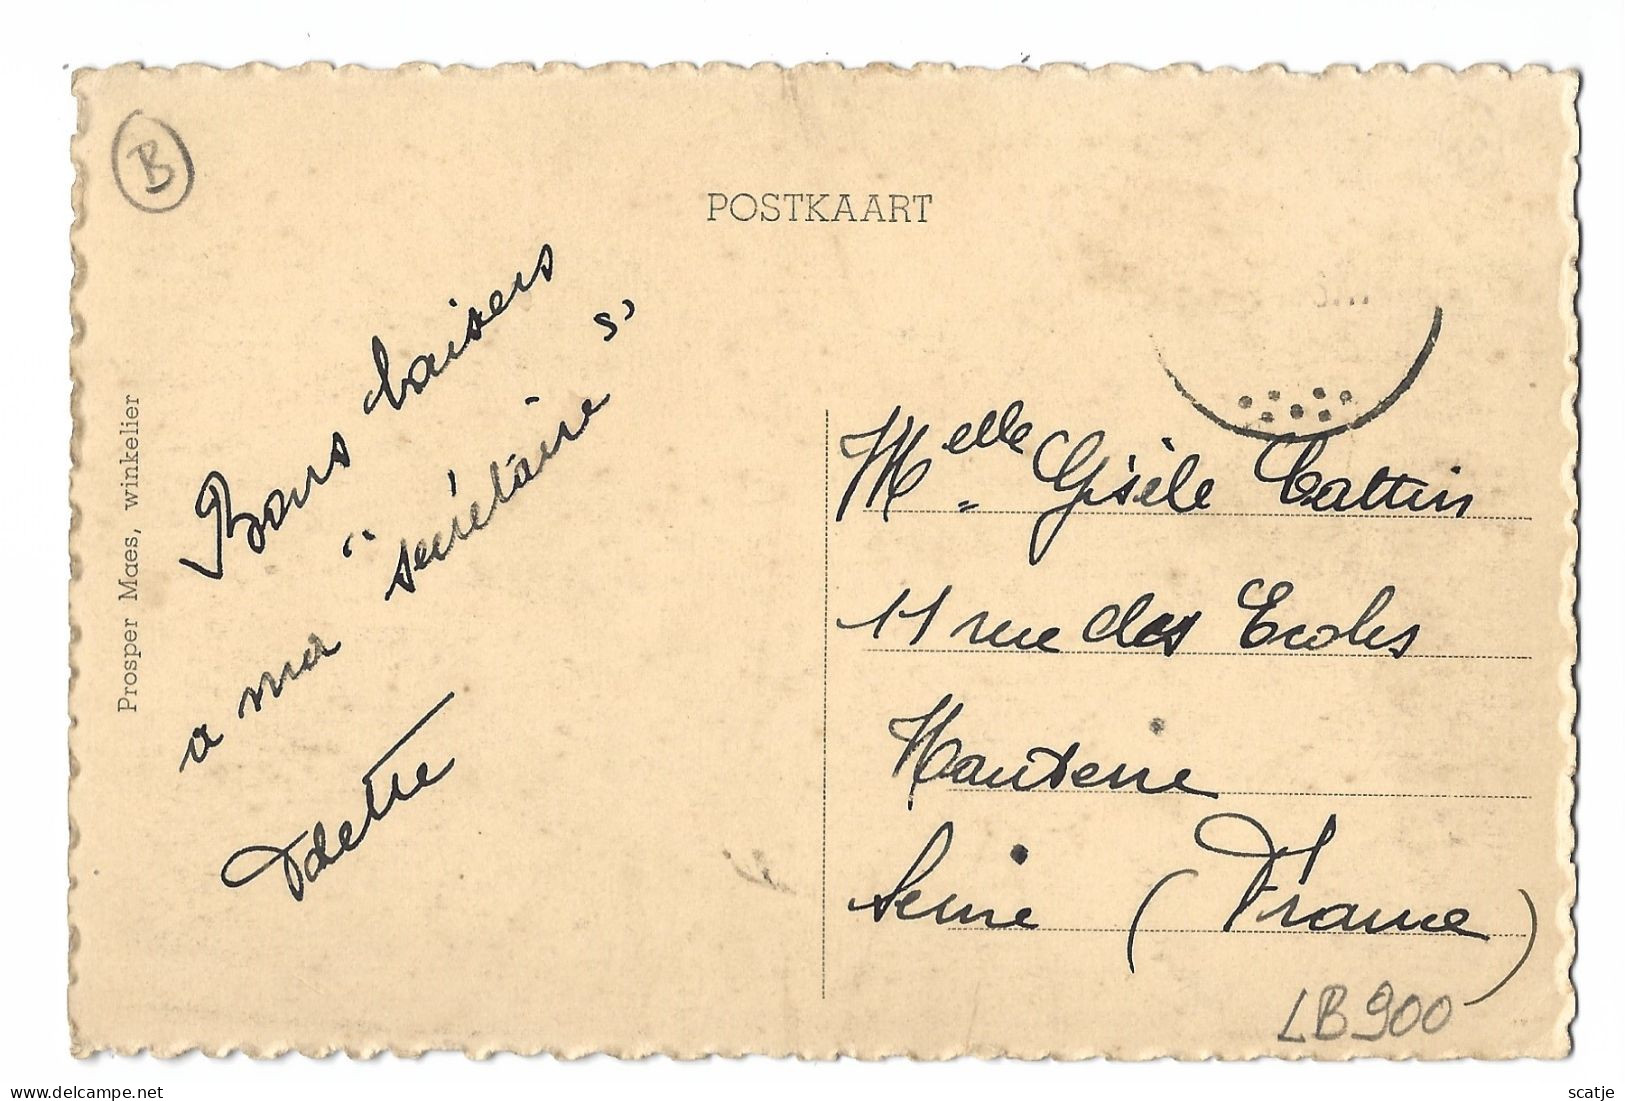 B
POSTKAART
Prosper Maes, winkelier
Bons baisers
a ma "secrétaire"
Odette
Melle Gisèle Cattin
11 rue des Ecoles
Nanterre
Seine (France)
LB900
www.delcampe.net
scatje